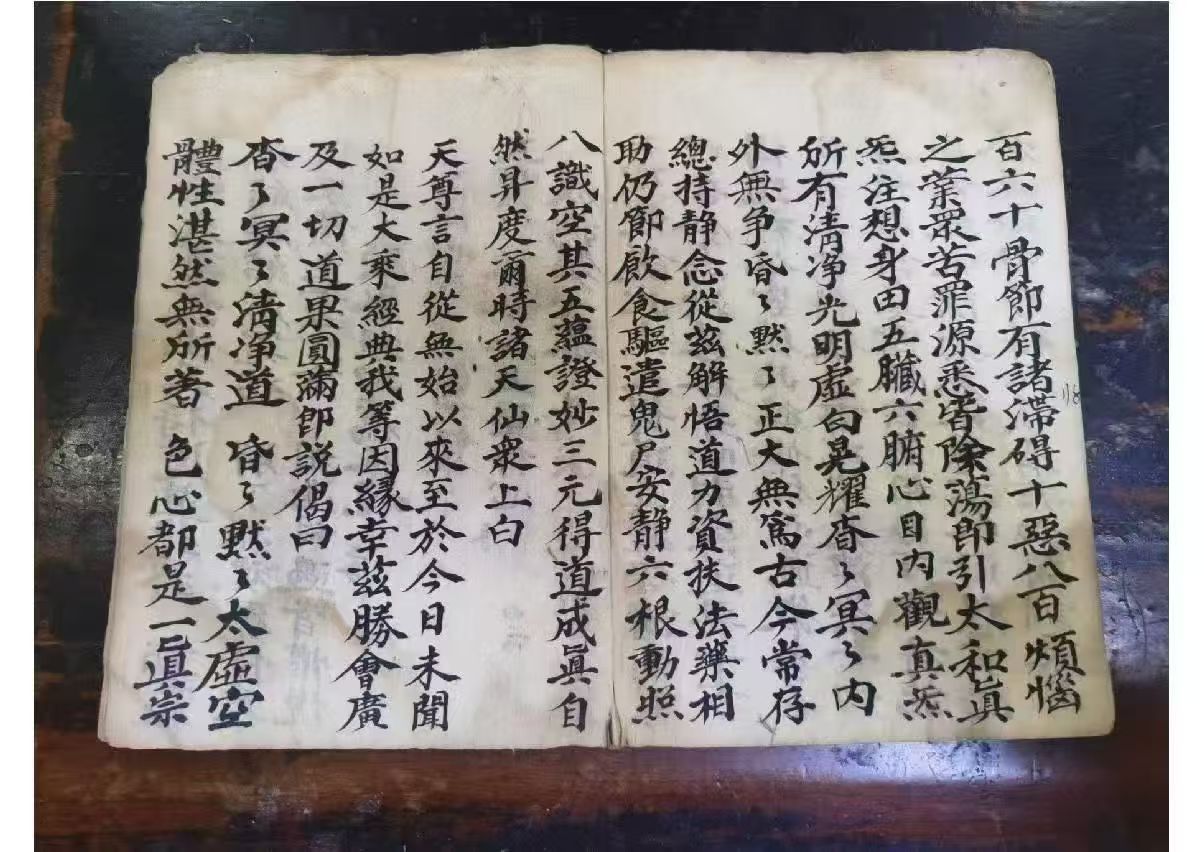 百六十骨節有諸滯碍十惡八百煩惱
之業衆苦罪源悉皆除蕩即引太和真
炁注想身田五臟六腑心目内觀真炁
所有清净光明虛白晃耀杳〻冥〻内
外無争昏〻默〻正大無為古今常存
總持静念從兹解悟道力資扶法藥相
助仍節飲食驅遣鬼尸安静六根動照
八識空其五蘊證妙三元得道成真自
然昇度爾時諸天仙衆上白
天尊言自從無始以來至於今日未聞
如是大乘經典我等因緣幸兹勝會廣
及一切道果圓滿即説偈曰
杳〻冥〻清净道 昏〻默〻太虛空
體性湛然無所著 色心都是一真宗